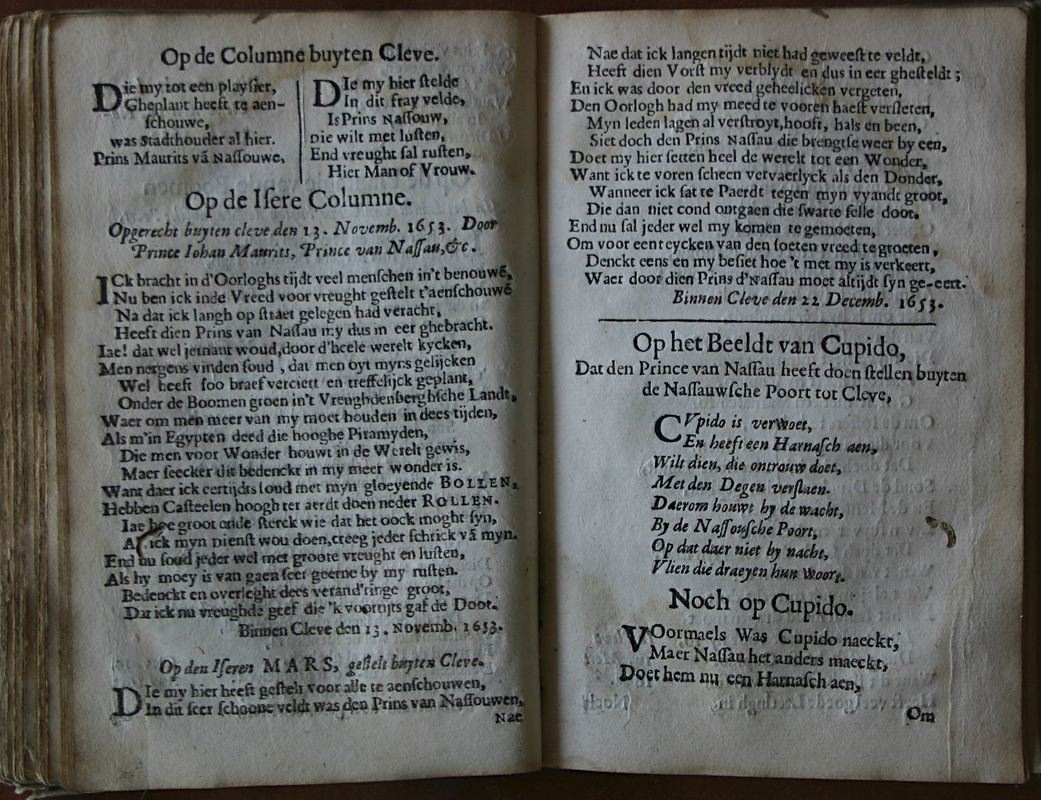 Op de Columne buyten Cleve.
DIe my tot een playſier,
Gheplant heeft te aen-
ſchouwe,
was Stadthouder al hier.
Prins Maurits vā Naſſouwe,
DIe my hier ſtelde
In dit fray velde,
Is Prins Naſſouw,
Die wilt met luſten,
End vreught ſal ruſten,
Hier Man of Vrouw.
Op de Iſere Columne.
Opgerecht buyten cleve den 13. Novemb. 1653. Door
Prince Iohan Maurits, Prince van Naſſau,&c.
ICk bracht in d'Oorloghs tijdt veel menſchen in't benouwē,
Nu ben ick inde Vreed voor vreught geſtelt t'aenſchouwē
Na dat ick langh op ſtraet gelegen had veracht,
Heeft dien Prins van Naſſau my dus in eer ghebracht.
Iae! dat wel jemant woud, door d'heele werelt kycken,
Men nergens vinden ſoud, dat men oyt myns gelijcken
Wel heeft ſoo braef verciert en treffelijck geplant,
Onder de Boomen groen in't Vreughdenberghſche Landt,
Waer om men meer van my moet houden in dees tijden,
Als m'in Egypten deed die hooghe Piramyden,
Die men voor Wonder houwt in de Werelt gewis,
Maer ſeecker dit bedenckt in my meer wonder is.
Want daer ick eertijdts ſoud met myn gloeyende BOLLEN,
Hebben Caſteelen hoogh ter aerdt doen neder ROLLEN.
Iae hoe groot ende ſterck wie dat het oock moght ſyn,
Als ick myn Dienſt wou doen, creeg jeder ſchrick vā myn.
End nu ſoud jeder wel met groote vreught en luſten,
Als hy moey is van gaen ſeer geerne by my ruſten.
Bedenckt en overleght dees verand'ringe groot,
Dat ick nu vreughde geef die 'k voortijts gaf de Doot.
Binnen Cleve den 13. Novemb. 1653.
Op den Iſeren MARS, geſtelt buyten Cleve.
DIe my hier heeft geſtelt voor alle te aenſchouwen,
In dit ſeer ſchoone veldt was den Prins van Naſſouwen,
Nae
Nae dat ick langen tijdt niet had geweeſt te veldt,
Heeft dien Vorſt my verblydt en dus in eer gheſteldt;
En ick was door den vreed geheelicken vergeten,
Den Oorlogh had my meed te vooren haeſt verſleten,
Myn leden lagen al verſtroyt, hooft, hals en been,
Siet doch den Prins Naſſau die brengtſe weer by een,
Doet my hier ſetten heel de werelt tot een Wonder,
Want ick te voren ſcheen vervaerlyck als den Donder,
Wanneer ick ſat te Paerdt tegen myn vyandt groot,
Die dan niet cond ontgaen die ſwarte felle doot.
End nu ſal jeder wel my komen te gemoeten,
Om voor een teycken van den ſoeten vreed te groeten,
Denckt eens en my beſiet hoe 't met my is verkeert,
Waer door dien Prins d'Naſſau moet altijdt ſyn ge-eert.
Binnen Cleve den 22 Decemb. 1653.
Op het Beeldt van Cupido,
Dat den Prince van Naſſau heeft doen ſtellen buyten
de Naſſauwſche Poort tot Cleve,
CVpido is verwoet,
En heeft een Harnaſch aen,
Wilt dien, die ontrouw doet,
Met den Degen verſlaen.
Daerom houwt hy de wacht,
By de Naſſouſche Poort,
Op dat daer niet by nacht,
Vlien die draeyen hun Woort.
Noch op Cupido.
VOormaels Was Cupido naeckt,
Maer Naſſau het anders maeckt,
Doet hem nu een Harnaſch aen,
Om